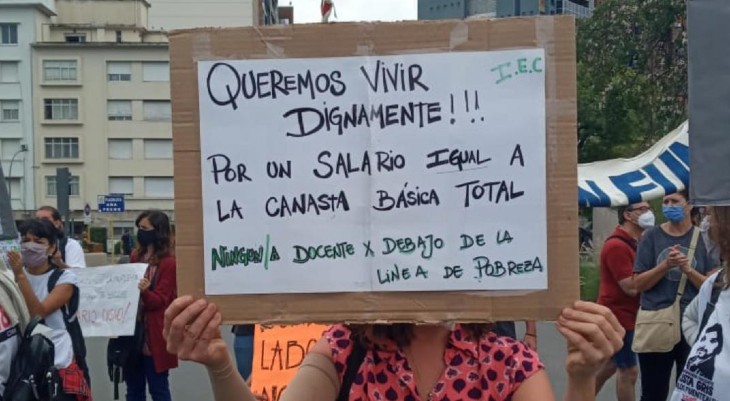 QUEREMOS VIVIR
DIGNAMENTE!!!
I.E.C
POR UN SALARIO IGUAL A
LA CANASTA BÁSICA TOTAL
NINGUN/A DOCENTE X DEBAJO DE LA
LINEA DE POBREZA
LABO